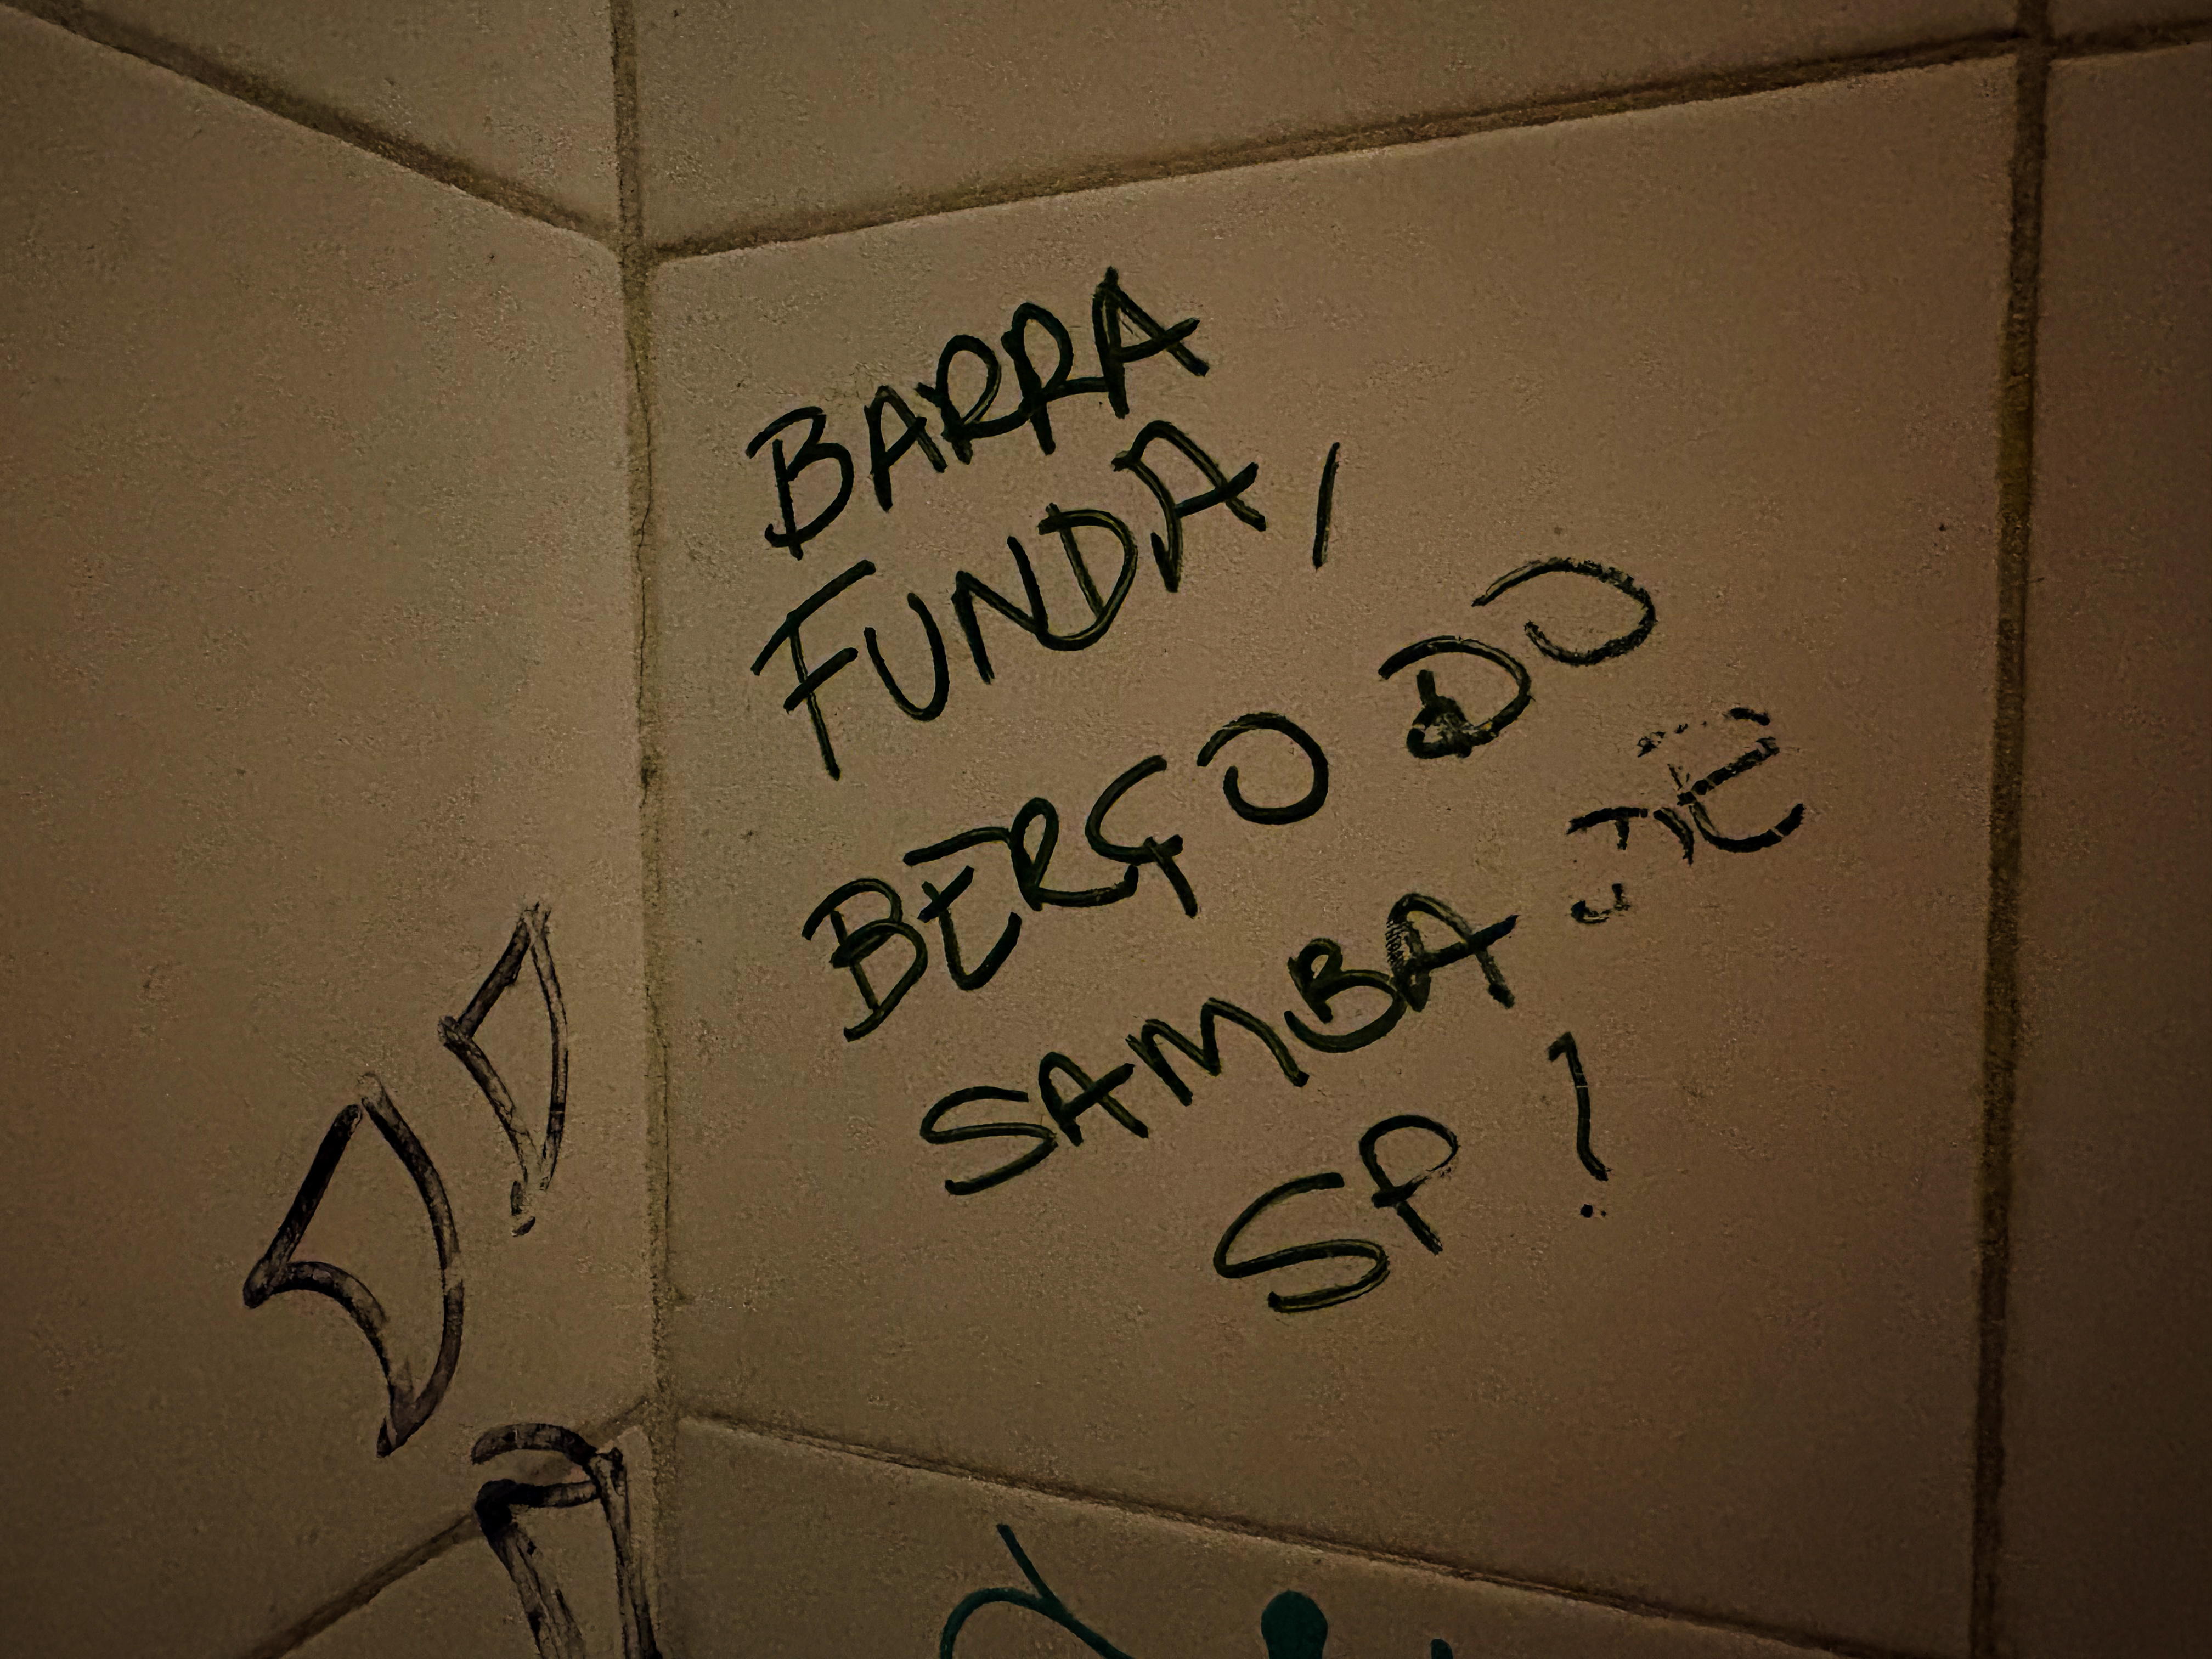 BARRA
FUNDA,
BERÇO DO
SAMBA DE
SP!